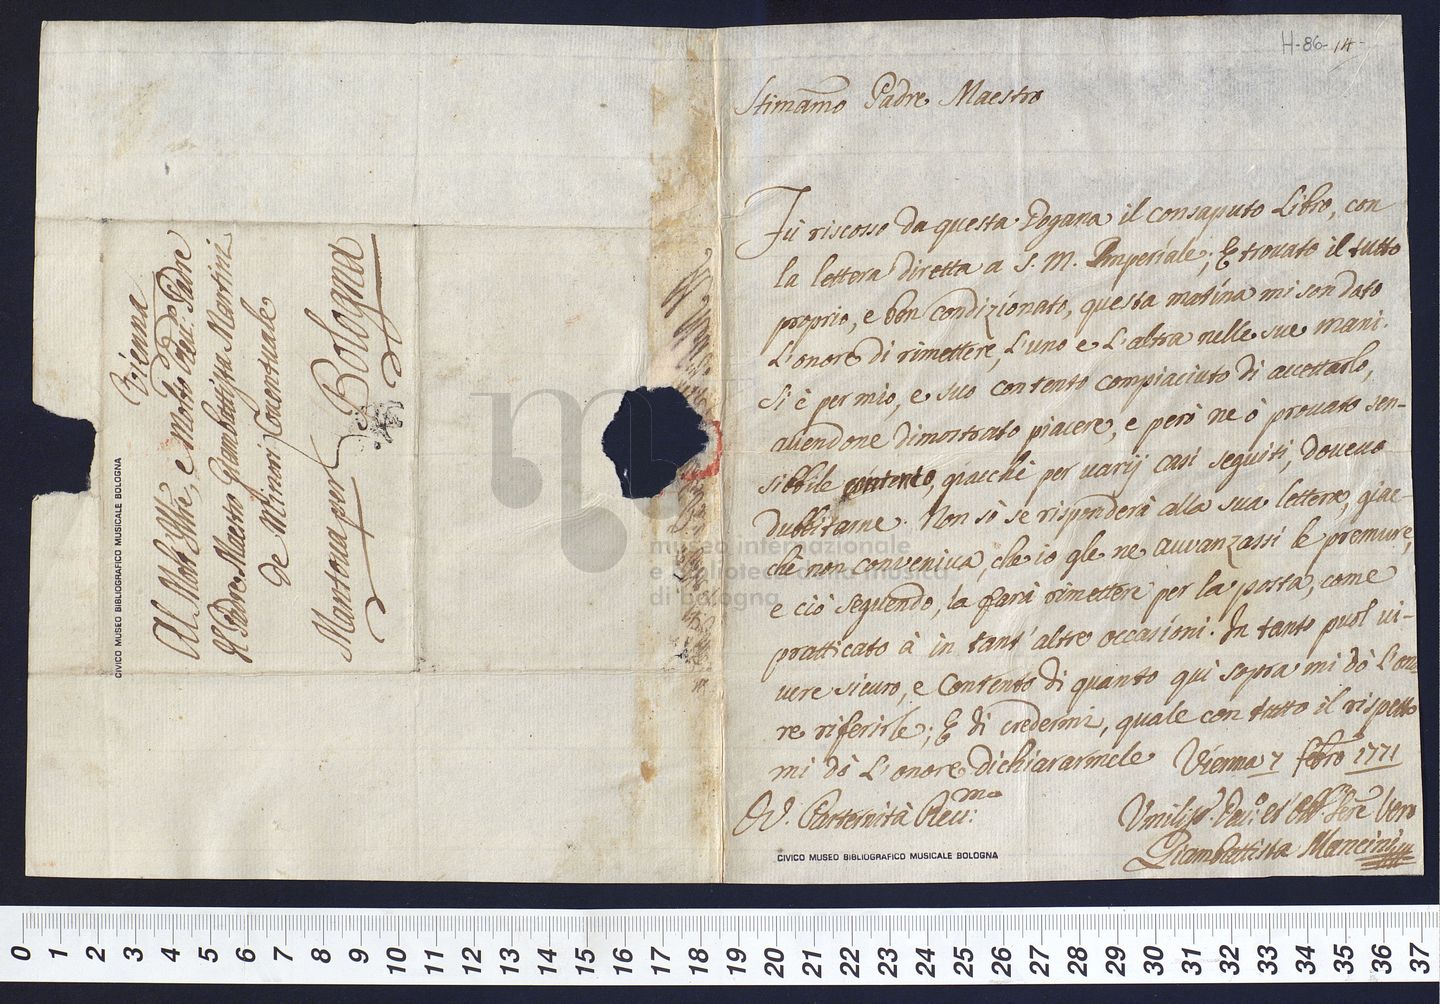 H-86-14-
Stimamo Padre Maestro
Fù riscosso da questa Dogana il consaputo Libro, con
la lettera diretta a S. M. Imperiale; E trovato il tutto
proprio, e ben condizionato, questa matina mi son dato
l'onore di rimettere, l'uno e l'altra nelle sue mani.
Si è per mio, e suo contento compiaciuto di accettarlo,
avendone dimostrato piacere, e però ne ò provato sen-
sibile contento, giacchè per varij casi seguiti, dovevo
dubbitarne. Non sò se risponderà alla sua lettera, giac-
chè non conveniva, che io gle ne avvanzassi le premure,
e ciò seguendo, la farà rimettere per la posta, come
pratticato à in tant'altre occasioni. In tanto puol vi-
vere sicuro, e contento di quanto quì sopra mi dò l'ono-
re riferirle; E di credermi, quale con tutto il rispetto
mi dò l'onore dichiararmele Vienna 7 febro 1771
D. V. Patternità Rev:ma
Umilissº Devº et Serre vero
Giambattista Mancini
CIVICO MUSEO BIBLIOGRAFICO MUSICALE BOLOGNA
Vienna
Al Molt Illre, e Molto Rev: Padre
Il Padre Maestro Giambattista Martini
de Minori Conventuale
Mantova per Bologna
CIVICO MUSEO BIBLIOGRAFICO MUSICALE BOLOGNA
museo internazionale
e biblioteca della musica
di bologna
0 1 2 3 4 5 6 7 8 9 10 11 12 13 14 15 16 17 18 19 20 21 22 23 24 25 26 27 28 29 30 31 32 33 34 35 36 37